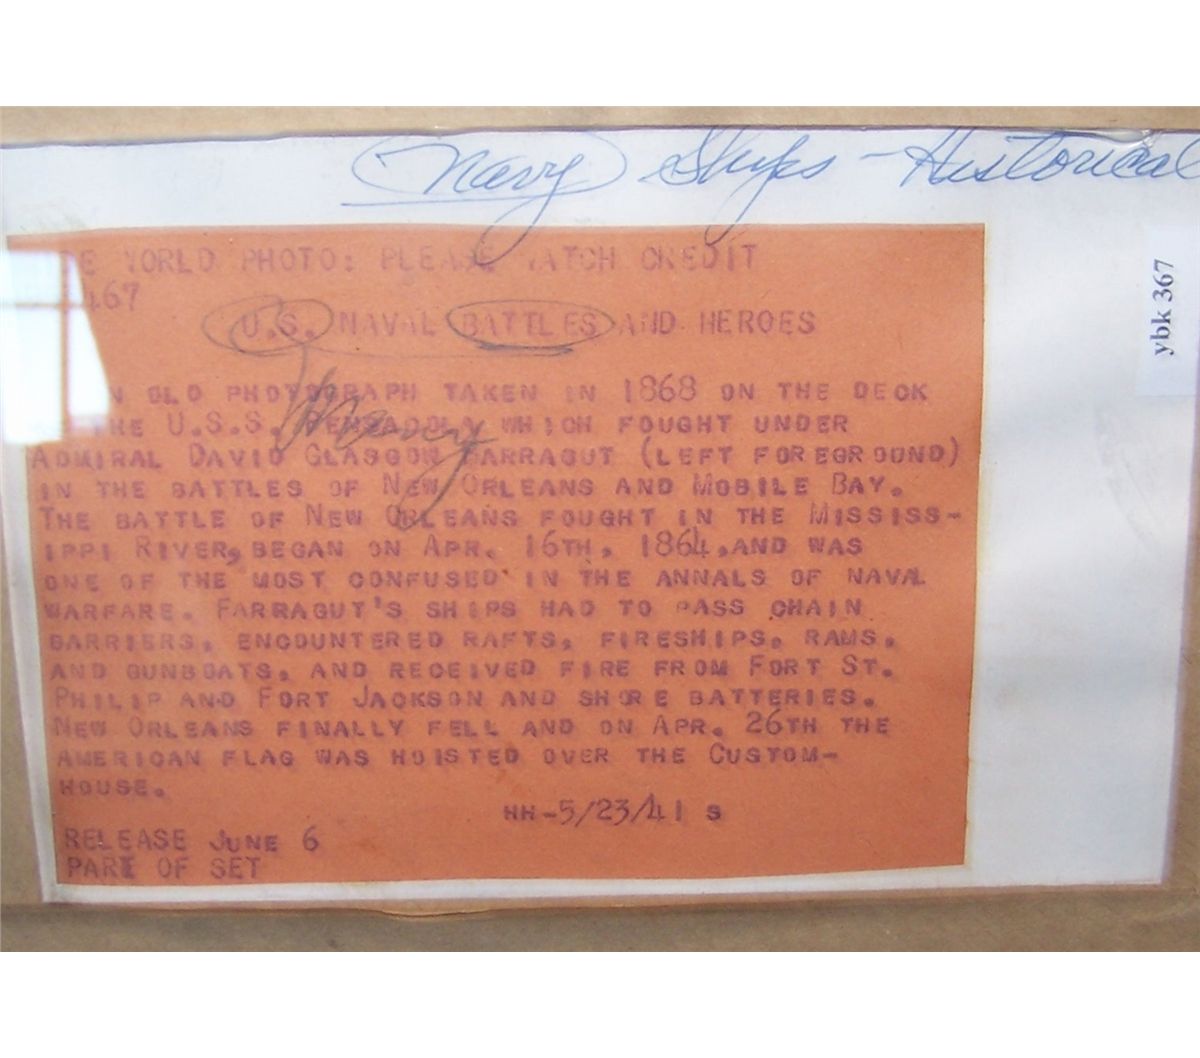 Navy Ships - Historical
E WORLD PHOTO: PLEASE WATCH CREDIT
467
U.S. NAVAL BATTLES AND HEROES
Navy
N OLD PHOTOGRAPH TAKEN IN 1868 ON THE DECK
THE U.S.S. PENSACOLA WHICH FOUGHT UNDER
ADMIRAL DAVID GLASGOW FARRAGUT (LEFT FOREGROUND)
IN THE BATTLES OF NEW ORLEANS AND MOBILE BAY.
THE BATTLE OF NEW ORLEANS FOUGHT IN THE MISSISS-
IPPI RIVER, BEGAN ON APR. 16TH, 1864, AND WAS
ONE OF THE MOST CONFUSED IN THE ANNALS OF NAVAL
WARFARE. FARRAGUT'S SHIPS HAD TO PASS CHAIN
BARRIERS, ENCOUNTERED RAFTS, FIRESHIPS, RAMS,
AND GUNBOATS, AND RECEIVED FIRE FROM FORT ST.
PHILIP AND FORT JACKSON AND SHORE BATTERIES.
NEW ORLEANS FINALLY FELL AND ON APR. 26TH THE
AMERICAN FLAG WAS HOISTED OVER THE CUSTOM-
HOUSE.
HH-5/23/41 S
RELEASE JUNE 6
PART OF SET
ybk 367